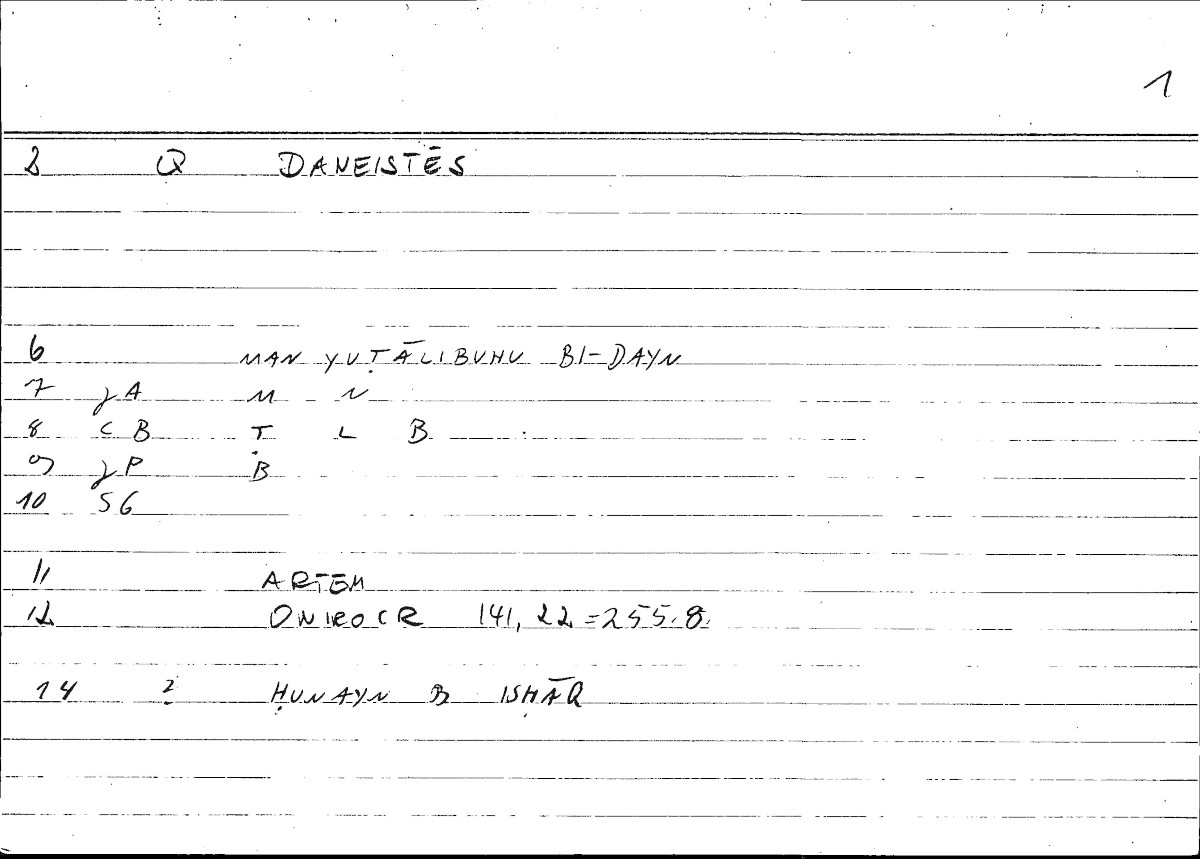 1
2 Q DANEISTĒS
6 MAN YUṬĀLIBUHU BI-DAYN
7 JA M N
8 CB Ṭ L B
9 JP B
10 SG
11 ARTEM
12 ONIROCR 141, 22 = 255.8.
14 2 ḤUNAYN B ISḤĀQ